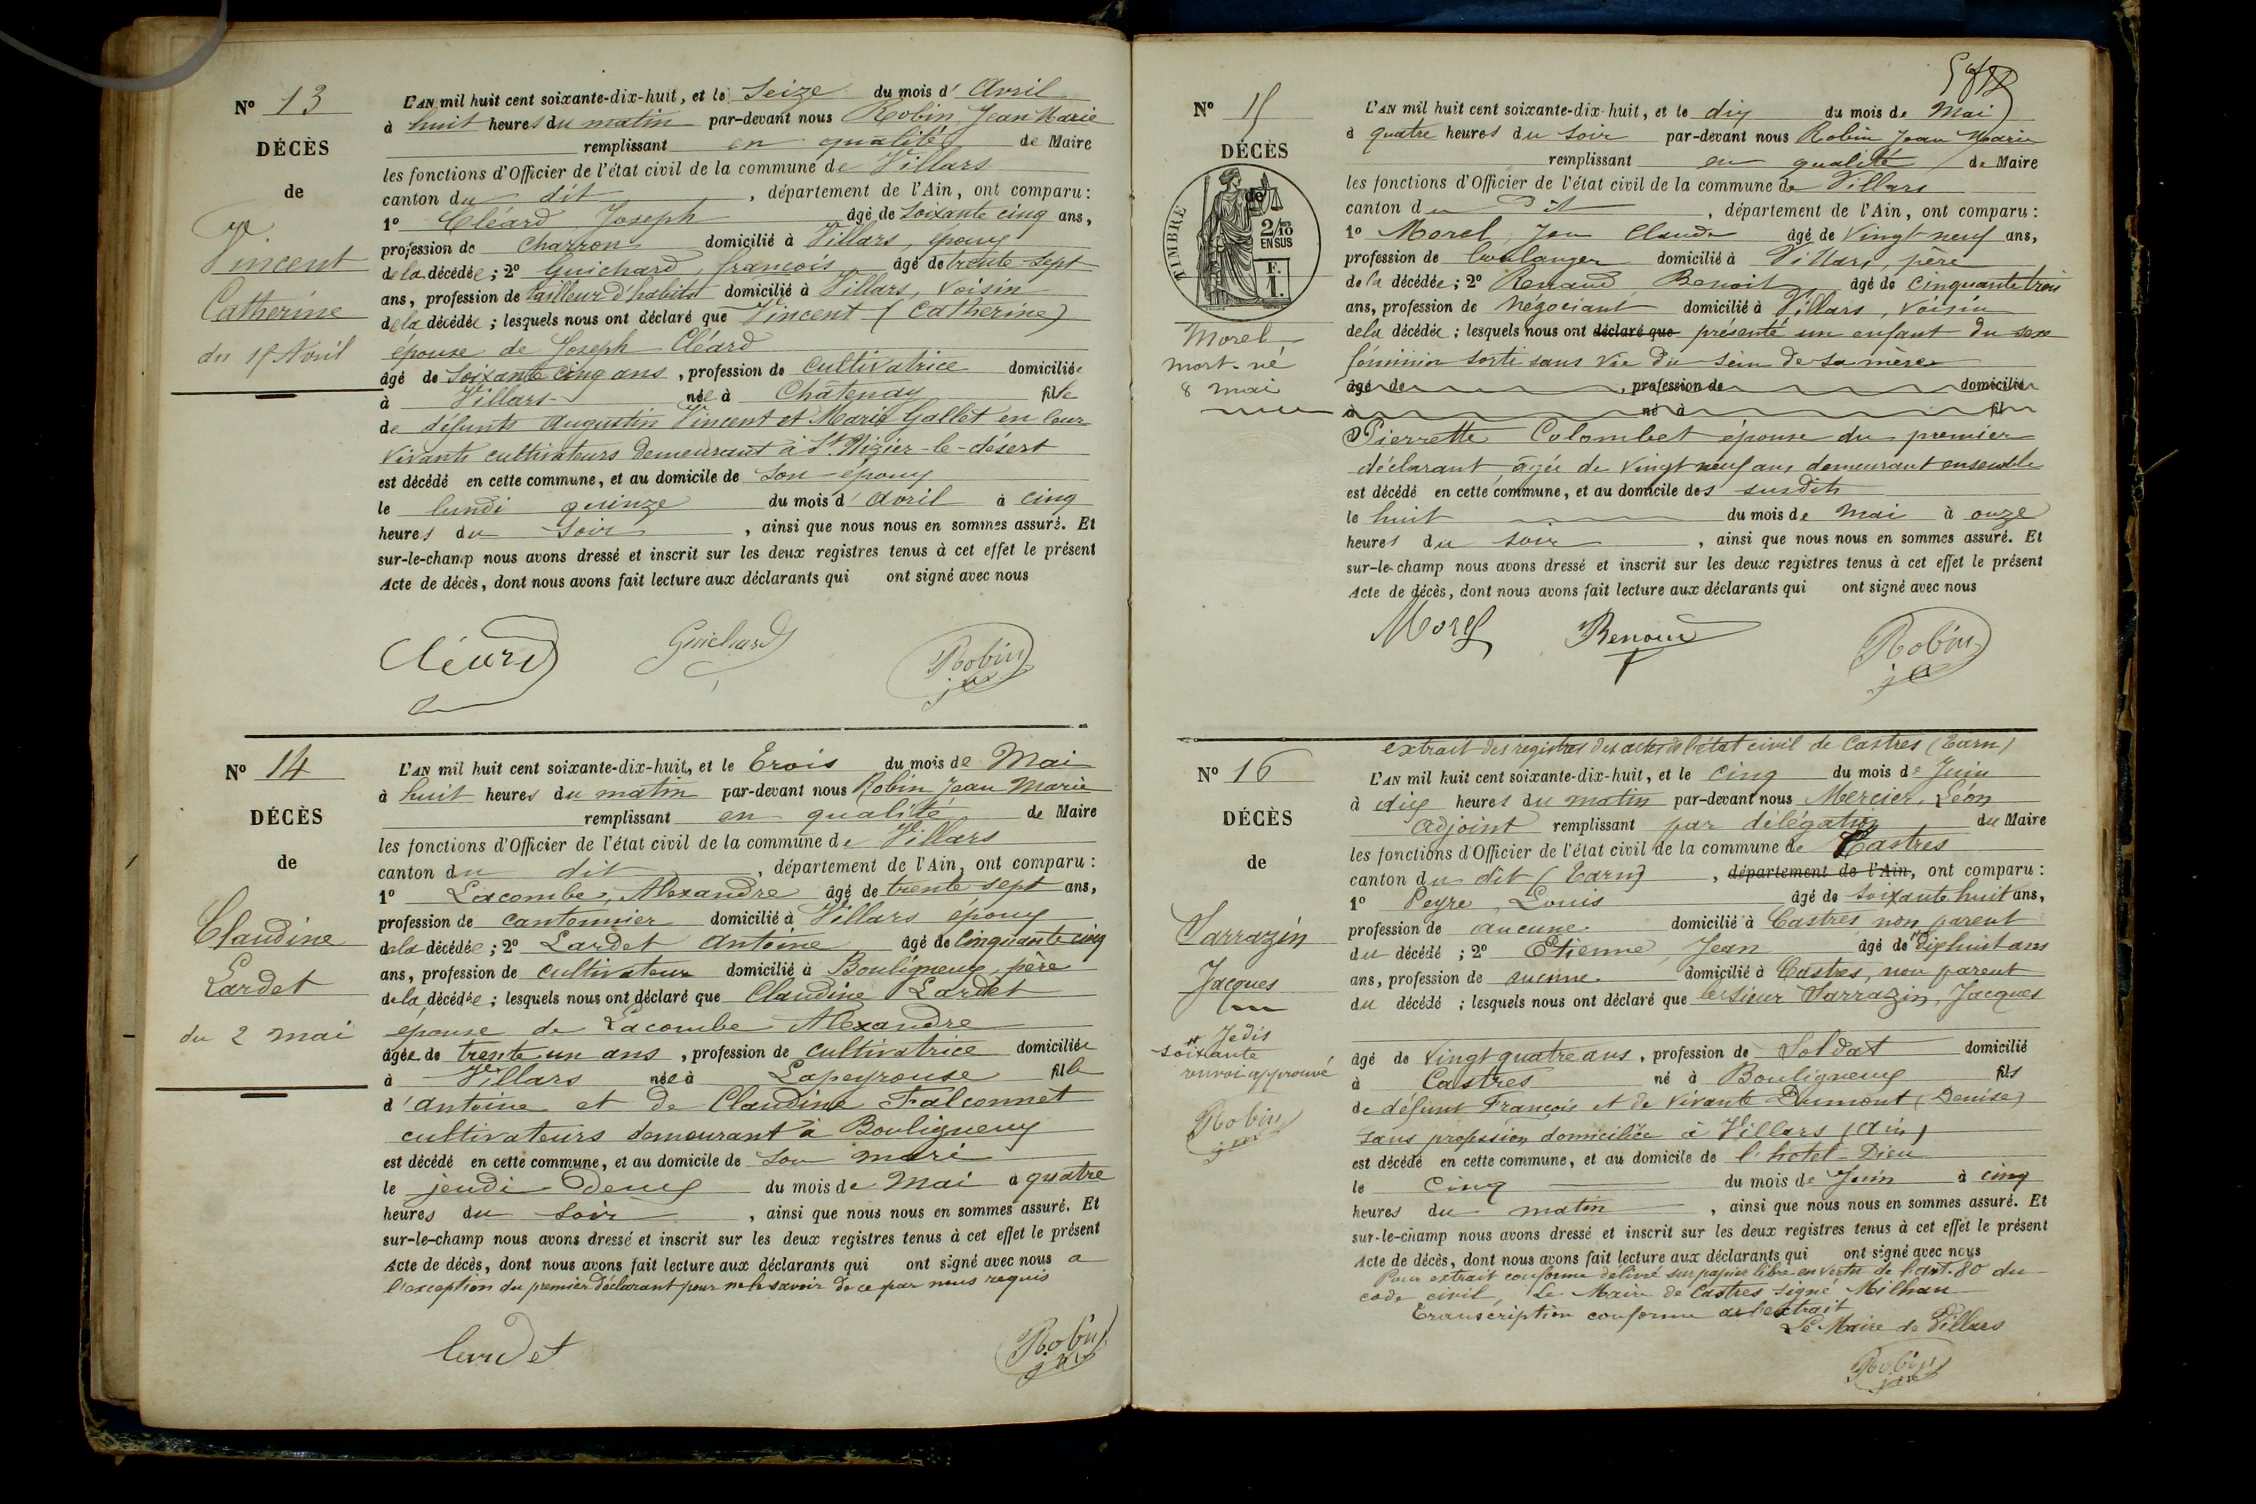 N° 13
DÉCÈS
de
Vincent
Catherine
du 15 Avril
L'AN mil huit cent soixante-dix-huit, et le Seize du mois d' Avril
à huit heures du matin par-devant nous Robin Jean Marie
remplissant en qualité de Maire
les fonctions d'Officier de l'état civil de la commune de Villars
canton du dit, département de l'Ain, ont comparu :
1° Cléard Joseph âgé de soixante cinq ans,
profession de charron domicilié à Villars, époux
de la décédée ; 2° Guichard, françois âgé de trente-sept
ans, profession de tailleur d'habits domicilié à Villars, voisin
de la décédée ; lesquels nous ont déclaré que Vincent (Catherine)
épouse de Joseph Cléard
âgé de soixante cinq ans, profession de cultivatrice domiciliée
à Villars née à Châtenay fille
de défunts Augustin Vincent et Marie Gallet en leur
vivants cultivateurs demeurant à St Nizier-le-désert
est décédé en cette commune, et au domicile de son époux
le lundi quinze du mois d' avril à cinq
heures du soir, ainsi que nous nous en sommes assuré. Et
sur-le-champ nous avons dressé et inscrit sur les deux registres tenus à cet effet le présent
Acte de décès, dont nous avons fait lecture aux déclarants qui ont signé avec nous
Cléard Guichard Robin
N° 14
DÉCÈS
de
Claudine
Lardet
du 2 mai
L'AN mil huit cent soixante-dix-huit, et le Trois du mois de Mai
à huit heures du matin par-devant nous Robin Jean Marie
remplissant en qualité de Maire
les fonctions d'Officier de l'état civil de la commune de Villars
canton du dit, département de l'Ain, ont comparu :
1° Lacombe, Alexandre âgé de trente sept ans,
profession de cantonnier domicilié à Villars époux
de la décédée ; 2° Lardet Antoine âgé de cinquante cinq
ans, profession de cultivateur domicilié à Bouligneux, père
de la décédée ; lesquels nous ont déclaré que Claudine Lardet
épouse de Lacombe Alexandre
âgée de trente un ans, profession de cultivatrice domiciliée
à Villars née à Lapeyrouse fille
d'antoine et de Claudine Falconnet
cultivateurs demeurant à Bouligneux
est décédé en cette commune, et au domicile de son mari
le jeudi deux du mois de Mai à quatre
heures du soir, ainsi que nous nous en sommes assuré. Et
sur-le-champ nous avons dressé et inscrit sur les deux registres tenus à cet effet le présent
Acte de décès, dont nous avons fait lecture aux déclarants qui ont signé avec nous a
l'exception du premier déclarant pour ne le savoir de ce par nous requis
lardet Robin
N° 15
DÉCÈS
de
TIMBRE
2/10
EN SUS
F.
1.
Morel
mort-né
8 mai
L'AN mil huit cent soixante-dix-huit, et le dix du mois de Mai
à quatre heures du soir par-devant nous Robin Jean Marie
remplissant en qualité de Maire
les fonctions d'Officier de l'état civil de la commune de Villars
canton du Dit, département de l'Ain, ont comparu :
1° Morel, Jean Claude âgé de vingt neuf ans,
profession de boulanger domicilié à Villars, père
de la décédée ; 2° Renaud Benoit âgé de cinquante trois
ans, profession de Négociant domicilié à Villars, voisin
de la décédée ; lesquels nous ont déclaré que présenté un enfant du sexe
féminin sorti sans vie du sein de sa mère
âgé de, profession de domicilié
à né à fil
Pierrette Colombet épouse du premier
déclarant âgée de vingt neuf ans demeurant ensemble
est décédé en cette commune, et au domicile des susdits
le huit du mois de Mai à onze
heures du soir, ainsi que nous nous en sommes assuré. Et
sur-le-champ nous avons dressé et inscrit sur les deux registres tenus à cet effet le présent
Acte de décès, dont nous avons fait lecture aux déclarants qui ont signé avec nous
Morel Renaud Robin
N° 16
DÉCÈS
de
Sarrazin
Jacques
Je dis
soixante
renvoi approuvé
Robin
extrait des registres des actes de l'état civil de Castres (Tarn)
L'AN mil huit cent soixante-dix-huit, et le cinq du mois de Juin
à dix heures du matin par-devant nous Mercier, Léon
adjoint remplissant par délégation du Maire
les fonctions d'Officier de l'état civil de la commune de Castres
canton du dit (Tarn), département de l'Ain, ont comparu :
1° Peyre, Louis âgé de soixante huit ans,
profession de aucune domicilié à Castres non parent
du décédé ; 2° Etienne, Jean âgé de dix huit ans
ans, profession de aucune domicilié à Castres, non parent
du décédé ; lesquels nous ont déclaré que le sieur Sarrazin, Jacques
âgé de vingt quatre ans, profession de Soldat domicilié
à Castres né à Bouligneux fils
de défunt François et de vivante Dumont (Denise)
sans profession domiciliée à Villars (Ain)
est décédé en cette commune, et au domicile de l'hotel-Dieu
le Cinq du mois de Juin à cinq
heures du matin, ainsi que nous nous en sommes assuré. Et
sur-le-champ nous avons dressé et inscrit sur les deux registres tenus à cet effet le présent
Acte de décès, dont nous avons fait lecture aux déclarants qui ont signé avec nous
Pour extrait conforme délivré sur papier libre en vertu de l'art. 80 du
code civil, Le Maire de Castres signé Milhau
Transcription conforme à l'extrait
Le Maire de Villars
Robin